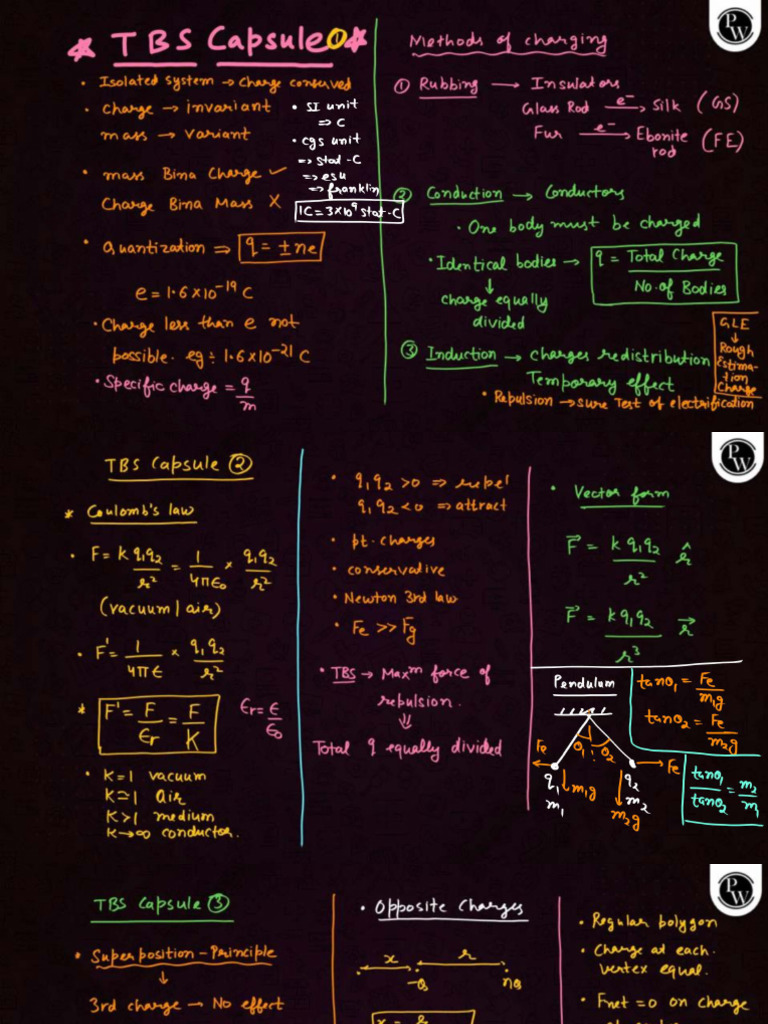 * TBS Capsule ① *
• Isolated system → charge conserved
• charge → invariant
mass → variant
• mass Bina Charge ✓
Charge Bina Mass X
• Quantization ⇒ q = ±ne
e = 1.6×10⁻¹⁹ C
• Charge less than e not
possible. eg: 1.6×10⁻²¹ C
• Specific charge = q/m
• SI unit
⇒ C
• cgs unit
⇒ stat-C
⇒ esu
⇒ franklin
1C = 3×10⁹ stat-C
Methods of charging
① Rubbing → Insulators
Glass Rod e⁻→ Silk (GS)
Fur e⁻→ Ebonite rod (FE)
② Conduction → Conductors
• One body must be charged
• Identical bodies → q = Total Charge / No. of Bodies
↓
charge equally
divided
③ Induction → charges redistribution
Temporary effect
• Repulsion → sure Test of electrification
GLE
↓
Rough
Estima-
tion
Charge
PW
TBS Capsule ②
* Coulomb's law
• F = k q₁q₂/r² = 1/4πε₀ × q₁q₂/r²
(vacuum | air)
• F' = 1/4πε × q₁q₂/r²
* F' = F/εr = F/K
εr = ε/ε₀
• K=1 vacuum
K≃1 air
K>1 medium
K→∞ conductor.
• q₁q₂ >0 ⇒ repel
q₁q₂ <0 ⇒ attract
• pt. charges
• conservative
• Newton 3rd law
• Fe >> Fg
• TBS → Maxᵐ force of
repulsion.
⇓
Total q equally divided
• Vector form
F⃗ = k q₁q₂/r² r̂
F⃗ = k q₁q₂/r³ r⃗
Pendulum
θ₁ θ₂
Fe Fe
q₁ m₁g q₂
m₁ m₂
m₂g
tanθ₁ = Fe/m₁g
tanθ₂ = Fe/m₂g
tanθ₁/tanθ₂ = m₂/m₁
PW
TBS Capsule ③
• Superposition-Principle
↓
3rd charge → No effect
• Opposite Charges
x r
-Q nQ
• Regular polygon
• Charge at each
vertex equal.
• Fnet = 0 on charge
PW